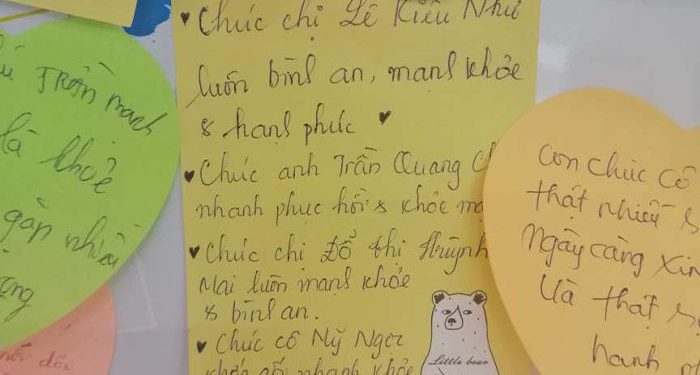 Trần mạnh
là khỏe
gặp nhiều
♥ Chúc chị Lê Kiều Như
luôn bình an, mạnh khỏe
& hạnh phúc ♥
♥ Chúc anh Trần Quang
nhanh phục hồi & khỏe
♥ Chúc chị Đỗ Thị Huỳnh
Mai luôn mạnh khỏe
& bình an.
♥ Chúc cô Mỹ Ngọc
nhanh khỏe
Little bear
con chúc cô
thật nhiều
Ngày càng
Và thật
hanh